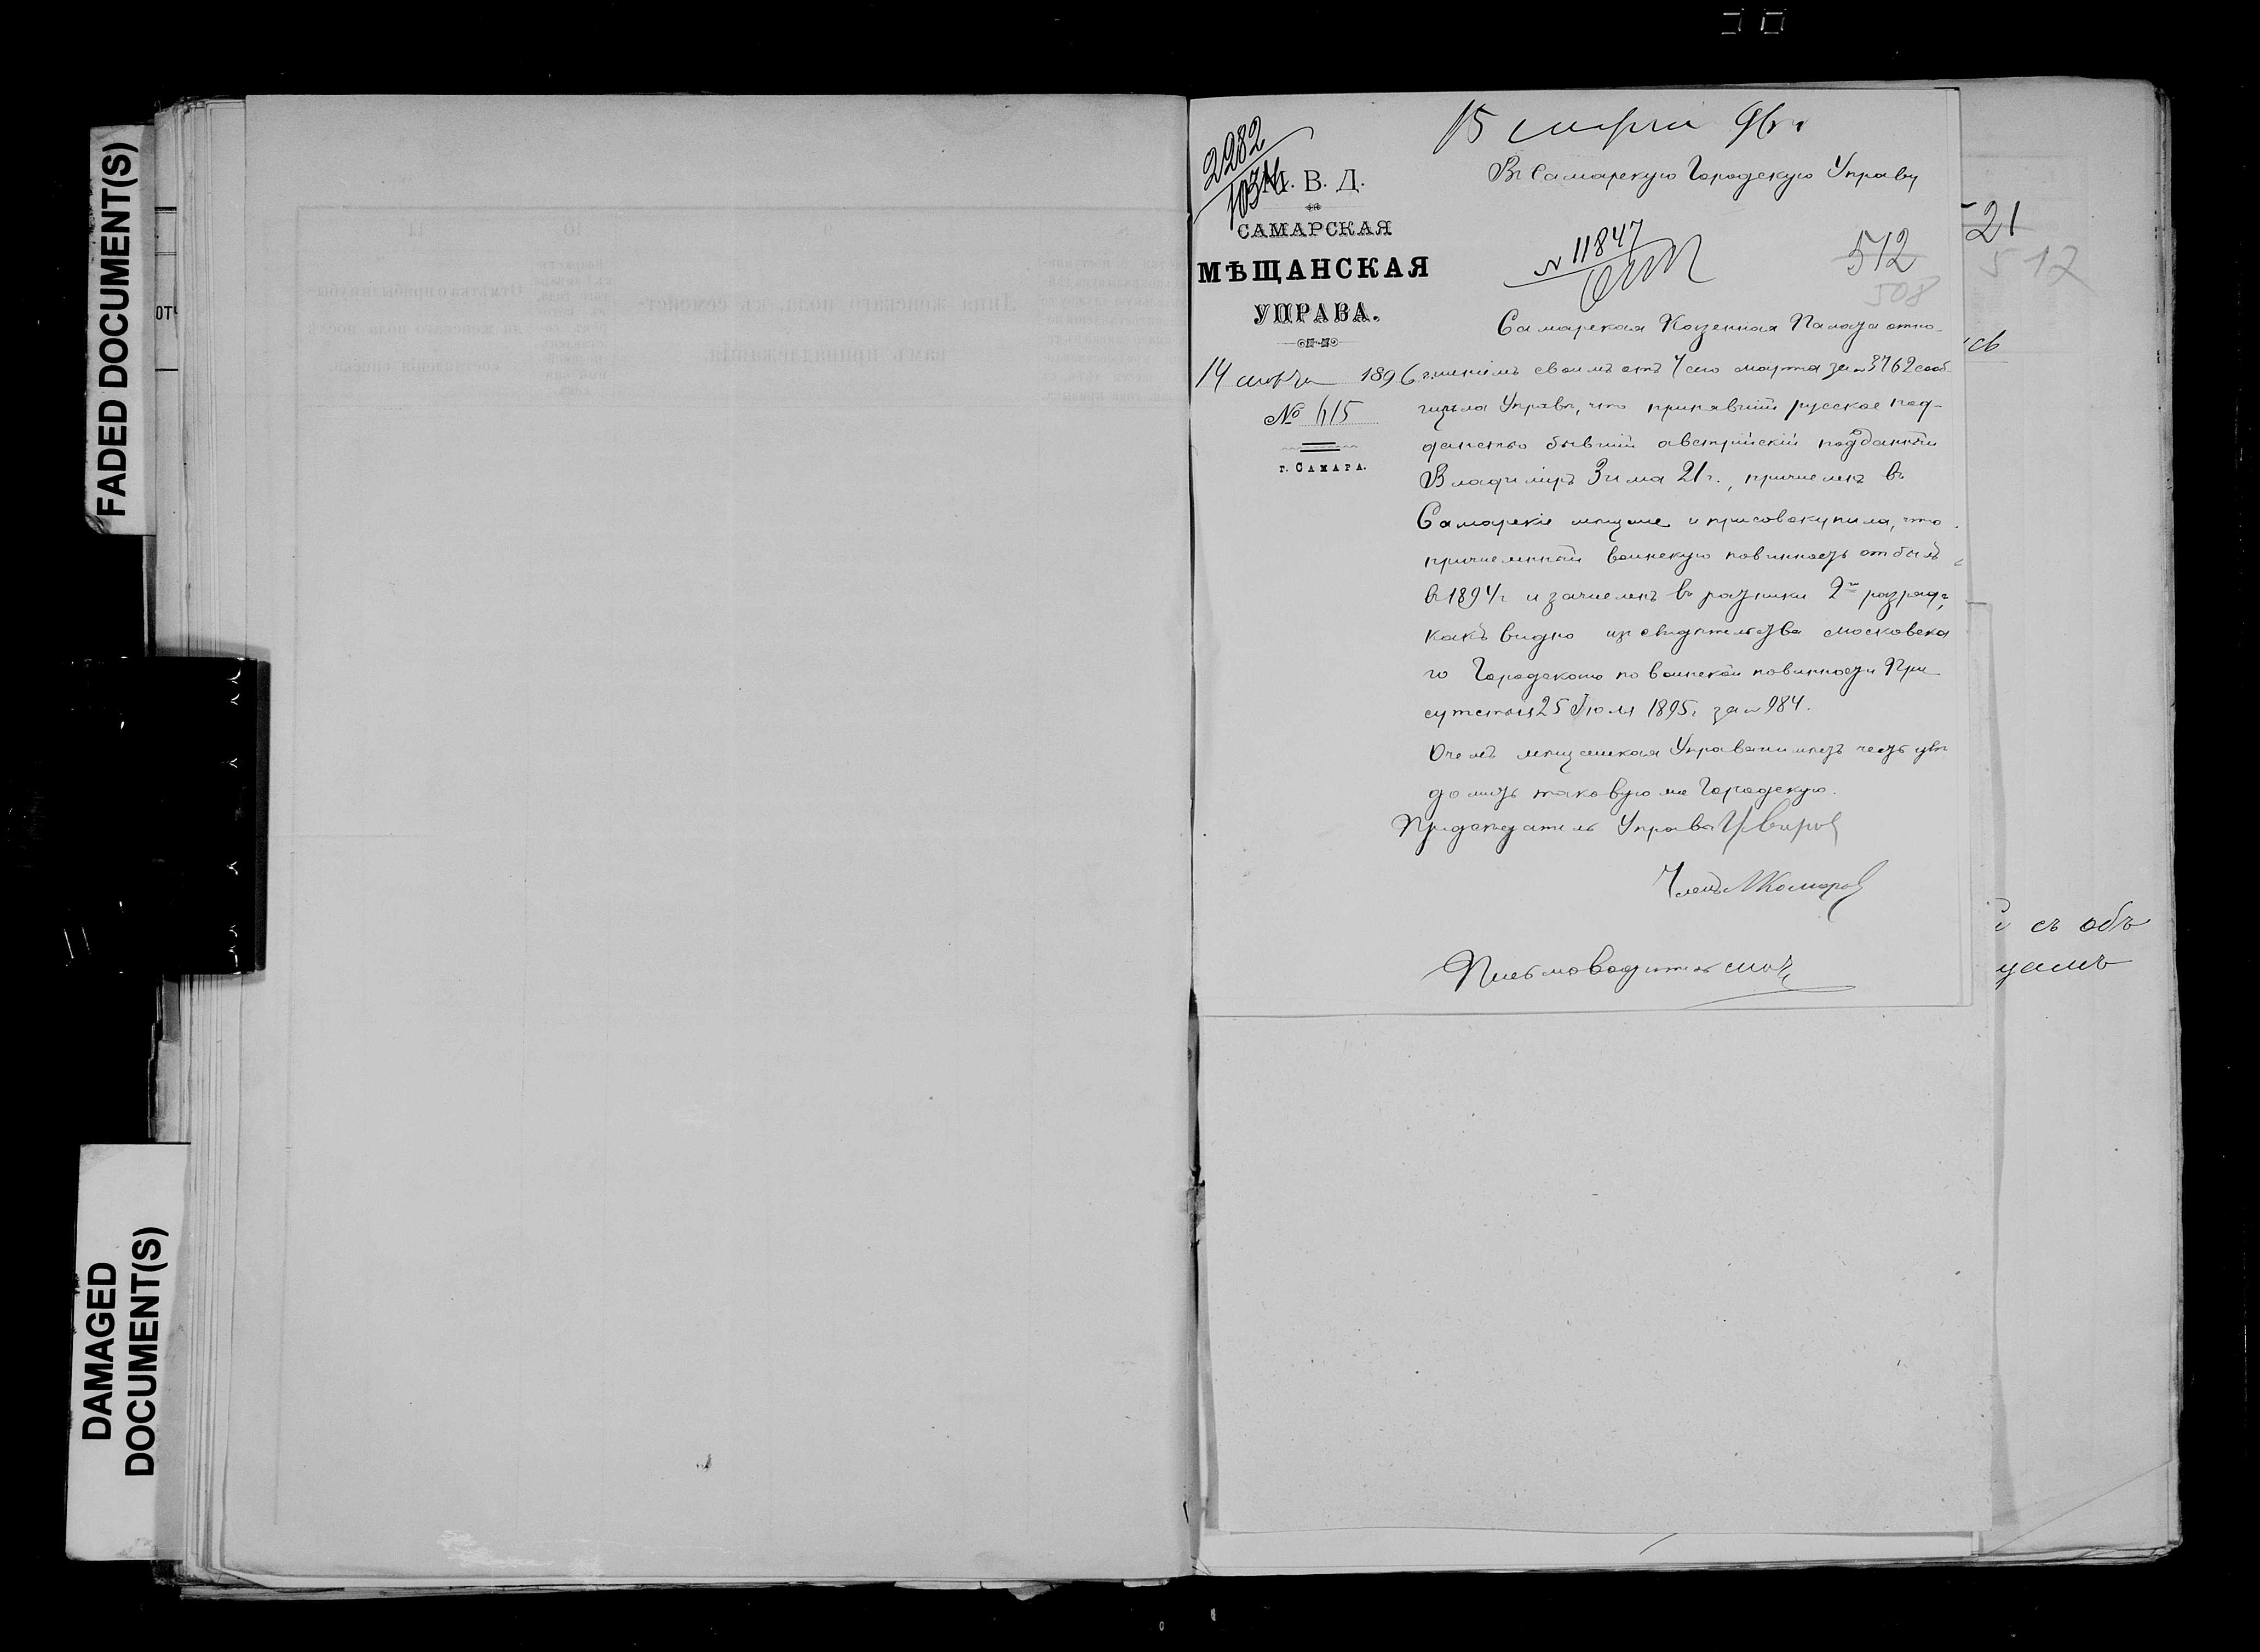 FADED DOCUMENT(S)
DAMAGED
DOCUMENT(S)
15 марта 96 г
2282
1034
М. В. Д.
САМАРСКАЯ
МѢЩАНСКАЯ
УПРАВА.
14 марта 1896 г.
№ 615
г. САМАРА.
Въ Самарскую Городскую Управу
N 11847
512
508
Самарская Казенная Палата отно-
шеніемъ своимъ отъ 7 сего марта за № 3762 сооб
щила Управѣ, что принявшій русское под-
данство бывшій австрійскій подданный
Владиміръ Зима 21 г., причисленъ въ
Самарскіе мѣщане и присовокупила, что
причисленный воинскую повинность отбылъ
въ 1894 г и зачисленъ въ ратники 2го разряда,
какъ видно изъ свидѣтельства московска
го Городского по воинской повинности При
сутствія 25 Іюля 1895 г за № 984.
О чемъ мѣщанская Управа имѣетъ честь увѣ
домить таковую же Городскую.
Предсѣдатель Управы
Членъ Комаров
Письмоводитель
21
517
съ объ